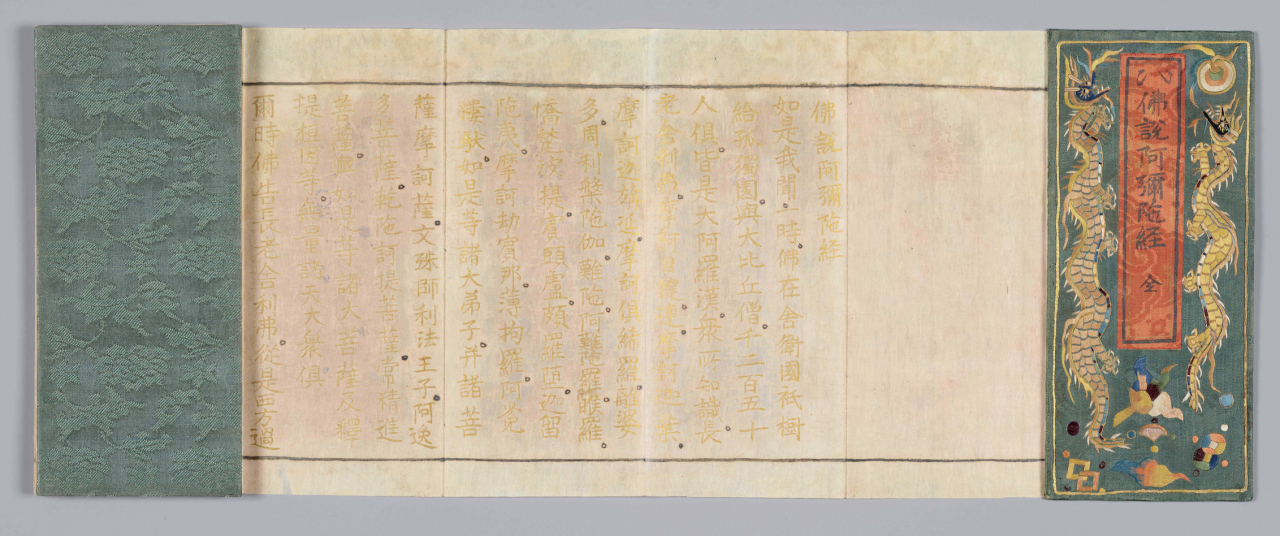 佛説阿彌陁経 全
佛説阿彌陁経
如是我聞一時佛在舍衛國祇樹
給孤獨園與大比丘僧千二百五十
人俱皆是大阿羅漢衆所知識長
老舍利弗摩訶目犍連摩訶迦葉
摩訶迦旃延摩訶俱絺羅離婆
多周利槃陁伽難陁阿難羅睺羅
憍梵波提賓頭盧頗羅墮迦留
陁夷摩訶劫賓那薄拘羅阿㝹
樓馱如是等諸大弟子并諸菩
薩摩訶薩文殊師利法王子阿逸
多菩薩乾陁訶提菩薩常精進
菩薩與如是等諸大菩薩及釋
提桓因等無量諸天大衆俱
爾時佛告長老舍利佛從是西方過